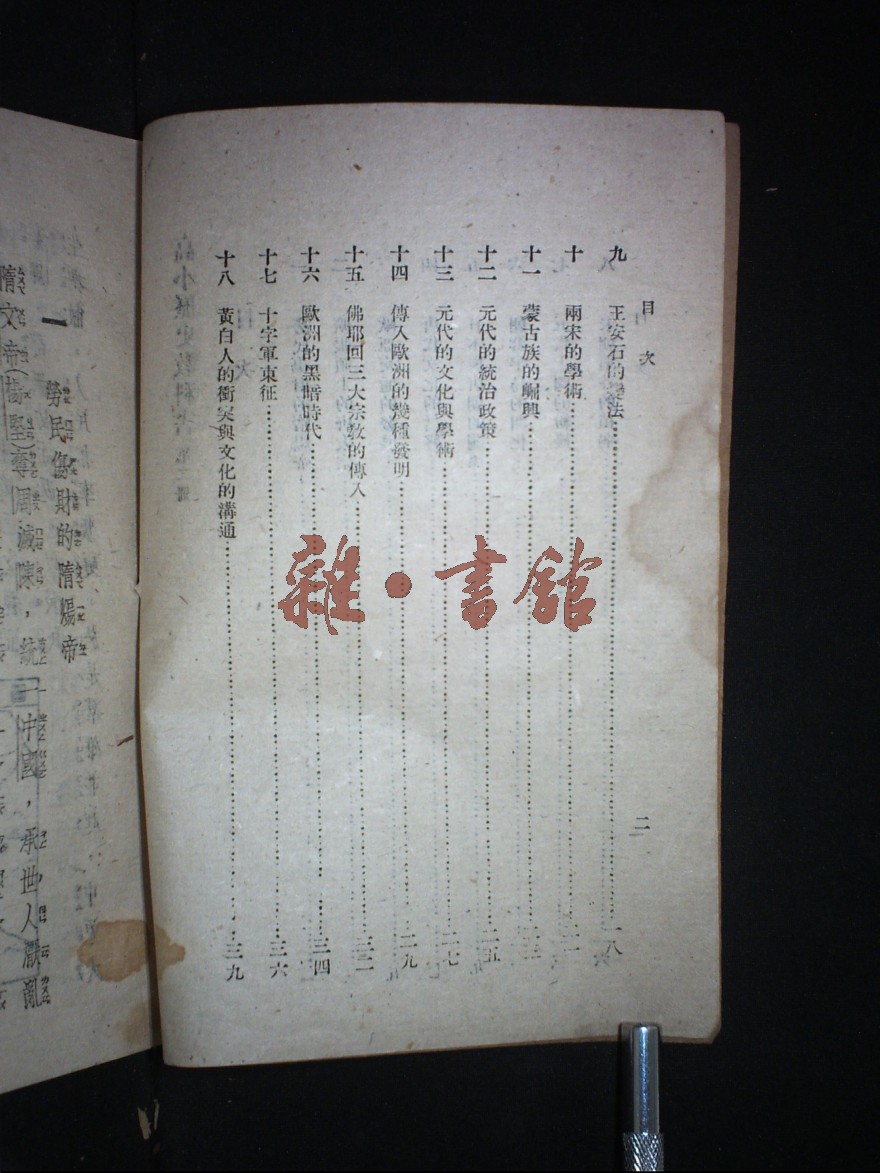 目次
九　王安石的變法……一八
十　兩宋的學術……二一
十一　蒙古族的崛興……二三
十二　元代的統治政策……二五
十三　元代的文化與學術……二七
十四　傳入歐洲的幾種發明……二九
十五　佛耶回三大宗教的傳入……三二
十六　歐洲的黑暗時代……三四
十七　十字軍東征……三六
十八　黃白人的衝突與文化的溝通……三九
二
雜·書館
一　勞民傷財的隋煬帝
隋文帝(楊堅)奪周滅陳，統一中國，承世人厭亂